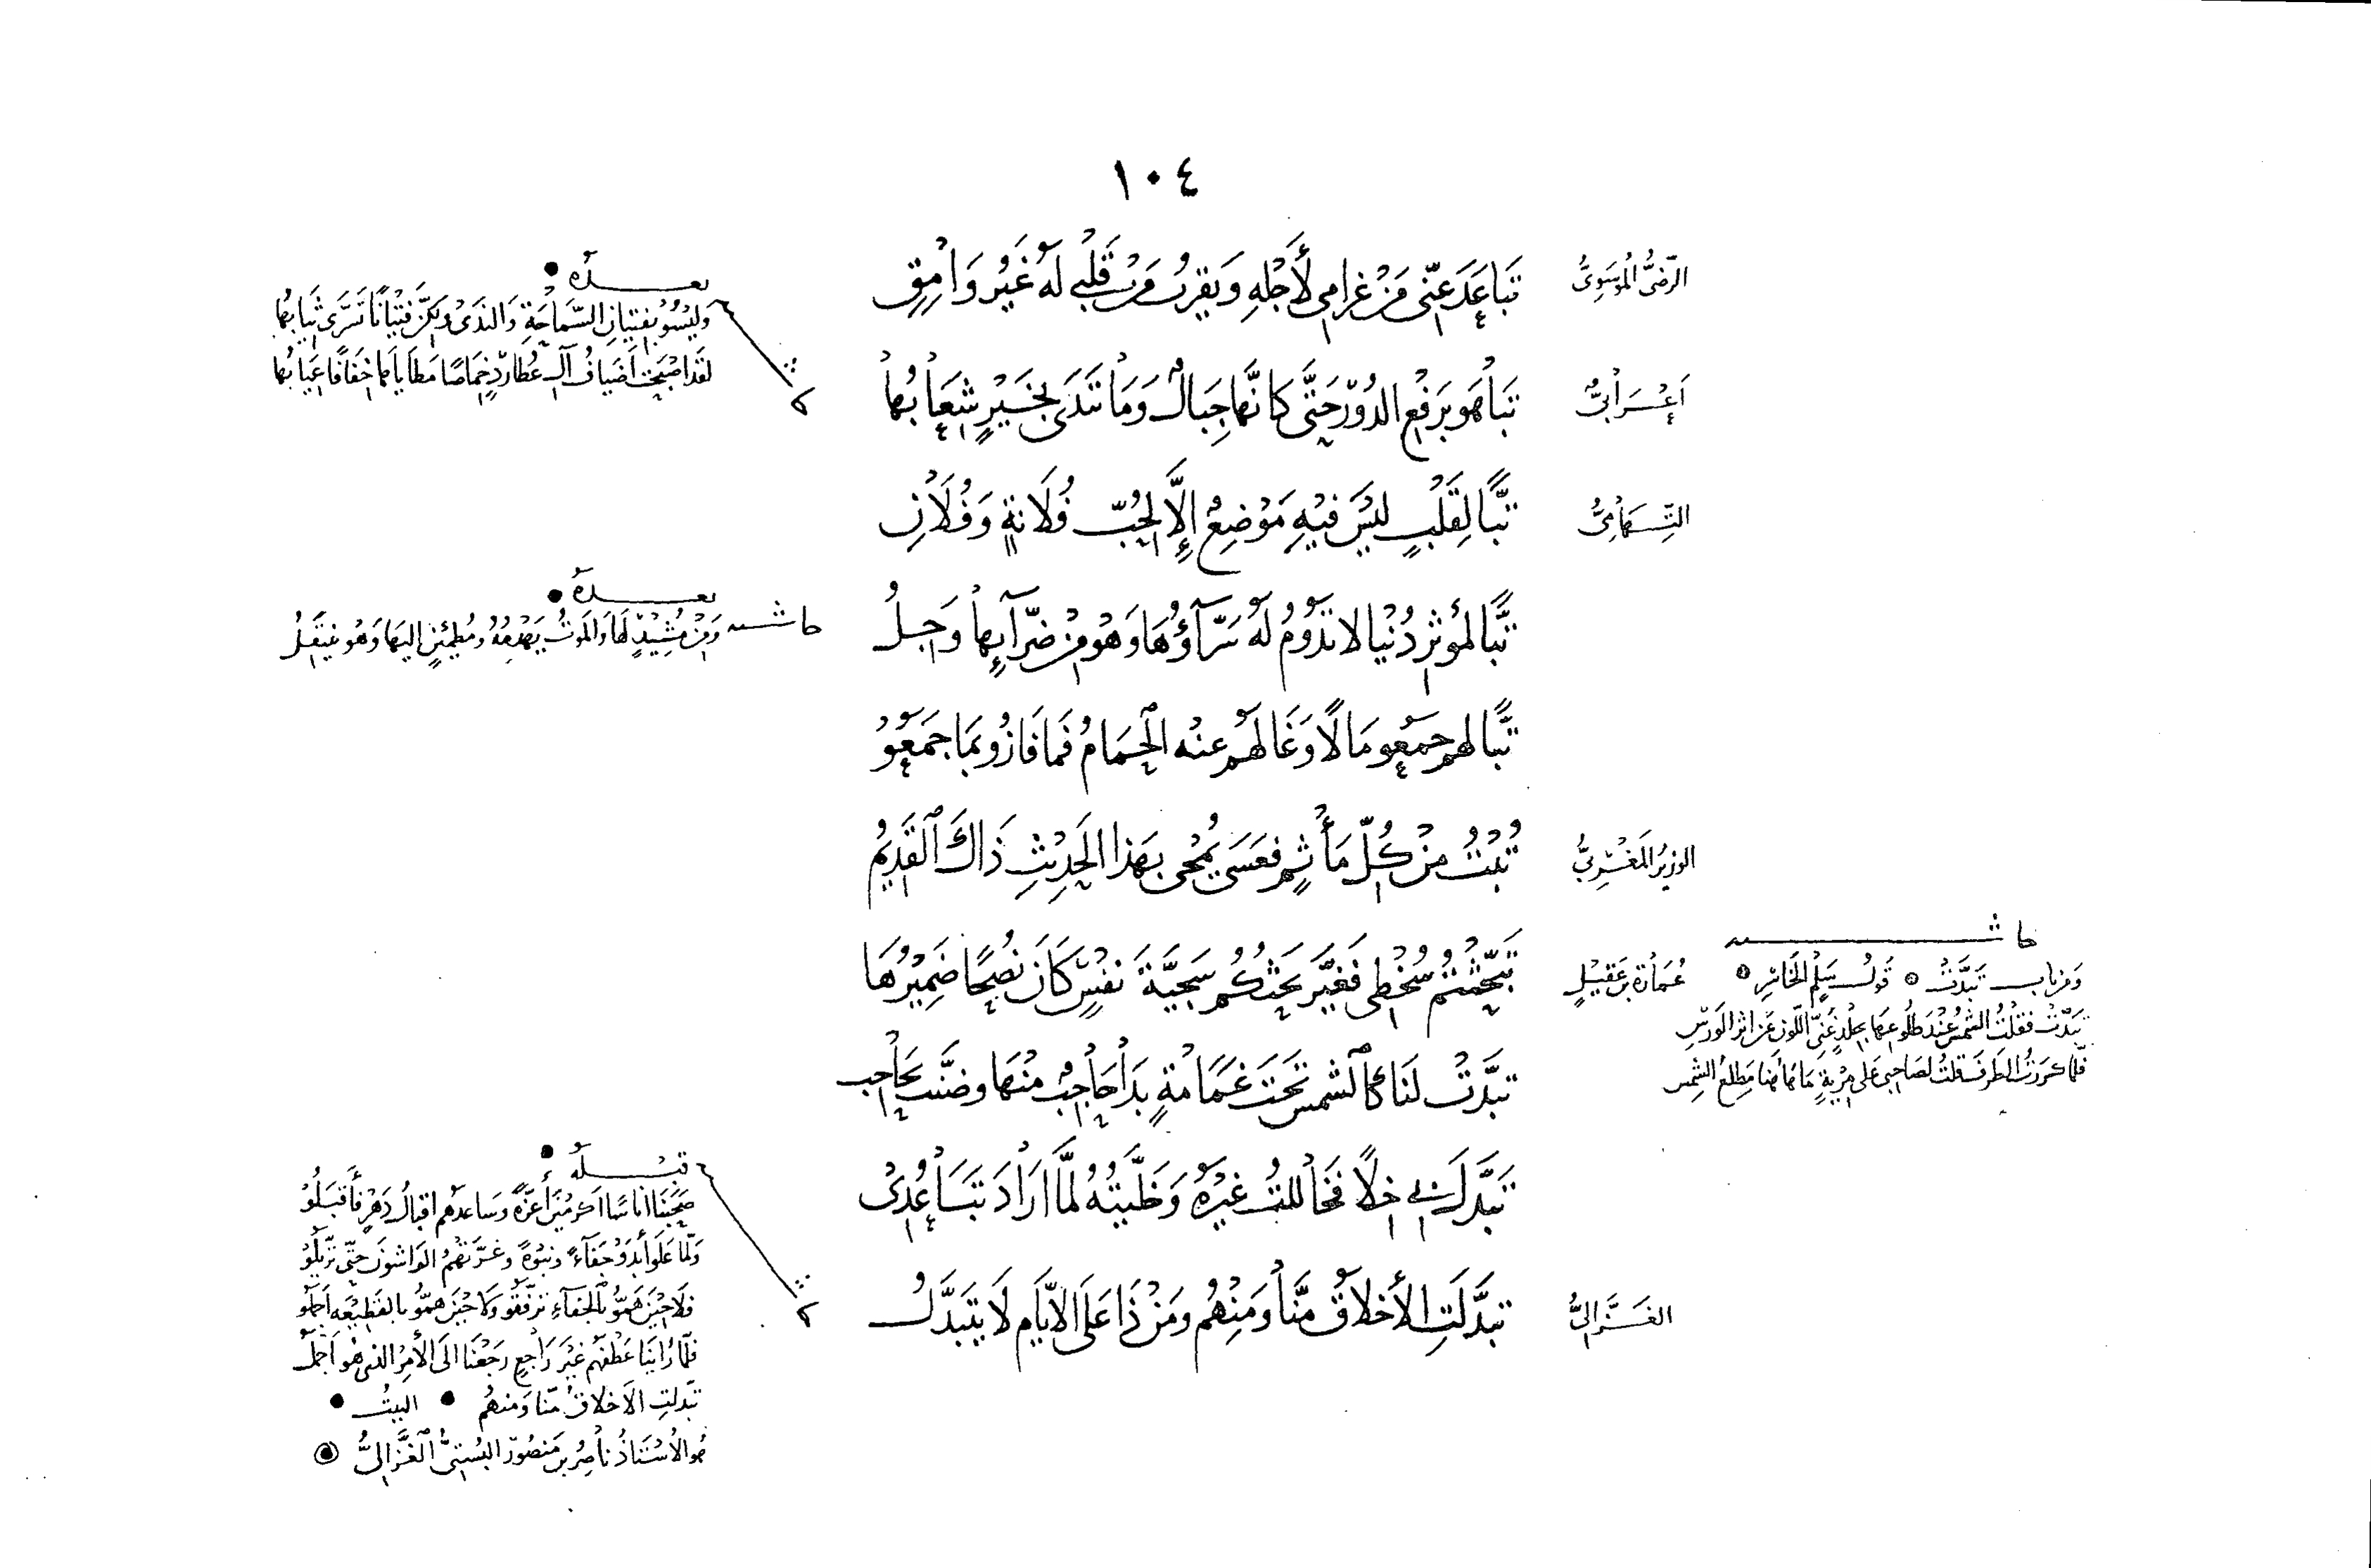 ١٠٤
الرّضيُّ الموسَويُّ
تَبَاعَدَ عنّي مَنْ غرامي لأَجْلِهِ وَيقربُ مَنْ قَلْبي لَهُ غَيْرُ وَامِقِ
أَعْرَابيٌّ
تَبَاهَو برَفْعِ الدُوْرِ حَتَّى كَانّهَا جِبَالٌ وَمَا تَنْدَى بخَيْرٍ شِعَابُهَا
بعده
وَلَيْسُو بفتيَانِ السَّمَاحَةِ وَالنَدَى وَلكنَّ فتْيَانًا تَسَرَّى ثيَابُهَا
لقَد اصْبَحَتْ أضيَافُ آلِ عُطارِدٍ خِمَاصًا مَطَايَاهَا خفَافًا عيَابُهَا
التِّهَامِيُّ
تَبًّا لِقَلْبٍ ليْسَ فيْهِ مَوْضِعُ إلَّا لحُبّ فُلَانةٍ وَفُلَانِ
تبًّا لمؤثِرِ دُنْيَا لا تدُوْمُ لَهُ سَرّآؤُهَا وَهُو مِنْ ضَرّآيِهَا وَجِلُ
حاشية
بعده
وَمِنْ مُشِيْدٍ لَهَا وَالمَوتُ يَهْدِمُهُ ومُطمِئنٍ اليهَا وَهُو ينتَقِلُ
تبًّا لهم جَمَعُو مَالًا وَغَالَهُم عنْه الحِمَامُ فَمَا فَازُو بمَا جَمَعُوْ
الوزيرُ المَغْرِبيُّ
تُبْتُ مِنْ كُلّ مَأْثمٍ فعَسَى يُمْحَى بهَذا الحَدِيْثِ ذَاكَ القَدِيْمُ
عُمَارَة بن عَقيْلٍ
تَبَحَّثْتُمُ سُخْطِي فَغَيَّرَ بَحْثُكُم سَجيَّةَ نفْسٍ كَانَ نُصْحًا ضَمِيْرُهَا
تبَدَّتْ لنَا كالشمسِ تَحتَ غَمَامَةٍ بَدَا حَاجِبٌ منْهَا وضنَّت بحَاجِب
حاشية
وَمن باب تَبَدَّتْ قَولُ سَلْمٍ الخَاسِرِ
تَبَدَّتْ فقلْتُ الشمسُ عنْدَ طلُوعهَا بجلْدٍ غَنيّ اللّونِ عَن اثَرِ الوَرْسِ
فلَمّا كرَرتُ الطرفَ قلتُ لصَاحبي عَلى مِرْيةٍ مَا هَا هُنَا مَطلعُ الشمسِ
تَبَدَّلَ بي خِلًّا فَخَاللْتُ غيْرَهُ وَخَلَّيْتُهُ لَمَّا ارَادَ تبَاعُدِيْ
الغَزَّاليُّ
تبَدَّلَتِ الأَخلاقُ مِنَّا وَمِنْهُم وَمَنْ ذَا عَلَى الأيَّامِ لَا يتَبَدَّلُ
قبله
صَحِبْنَا انَاسًا اكرميْنَ أَعزَّةً وَساعدَهُم اقبالُ دَهْرٍ فأَقبَلُوْ
وَلمّا عَلَو أَبدَوْ جَفَآءً ونبْوَةً وغرَّتهُمُ الوَاشونَ حتّى تزَيَّلُو
فلَا حيْنَ هَمُّو بالجَفآءِ ترَفّقُو وَلا حيْنَ همُّو بالقَطِيْعَه اجمَلُو
فلَمّا رَأينَا عَطْفَهُم غيْرَ رَاجعٍ رجَعْنَا الَى الأَمرِ الذي هُوَ أجْمَلُ
تبَدّلتِ الأَخلاقُ مِنّا وَمنهُم البيتُ
هُو الاُسْتَاذُ نَاصِرُ بن مَنصُوْر البُسْتيُّ الغَزَّاليُّ